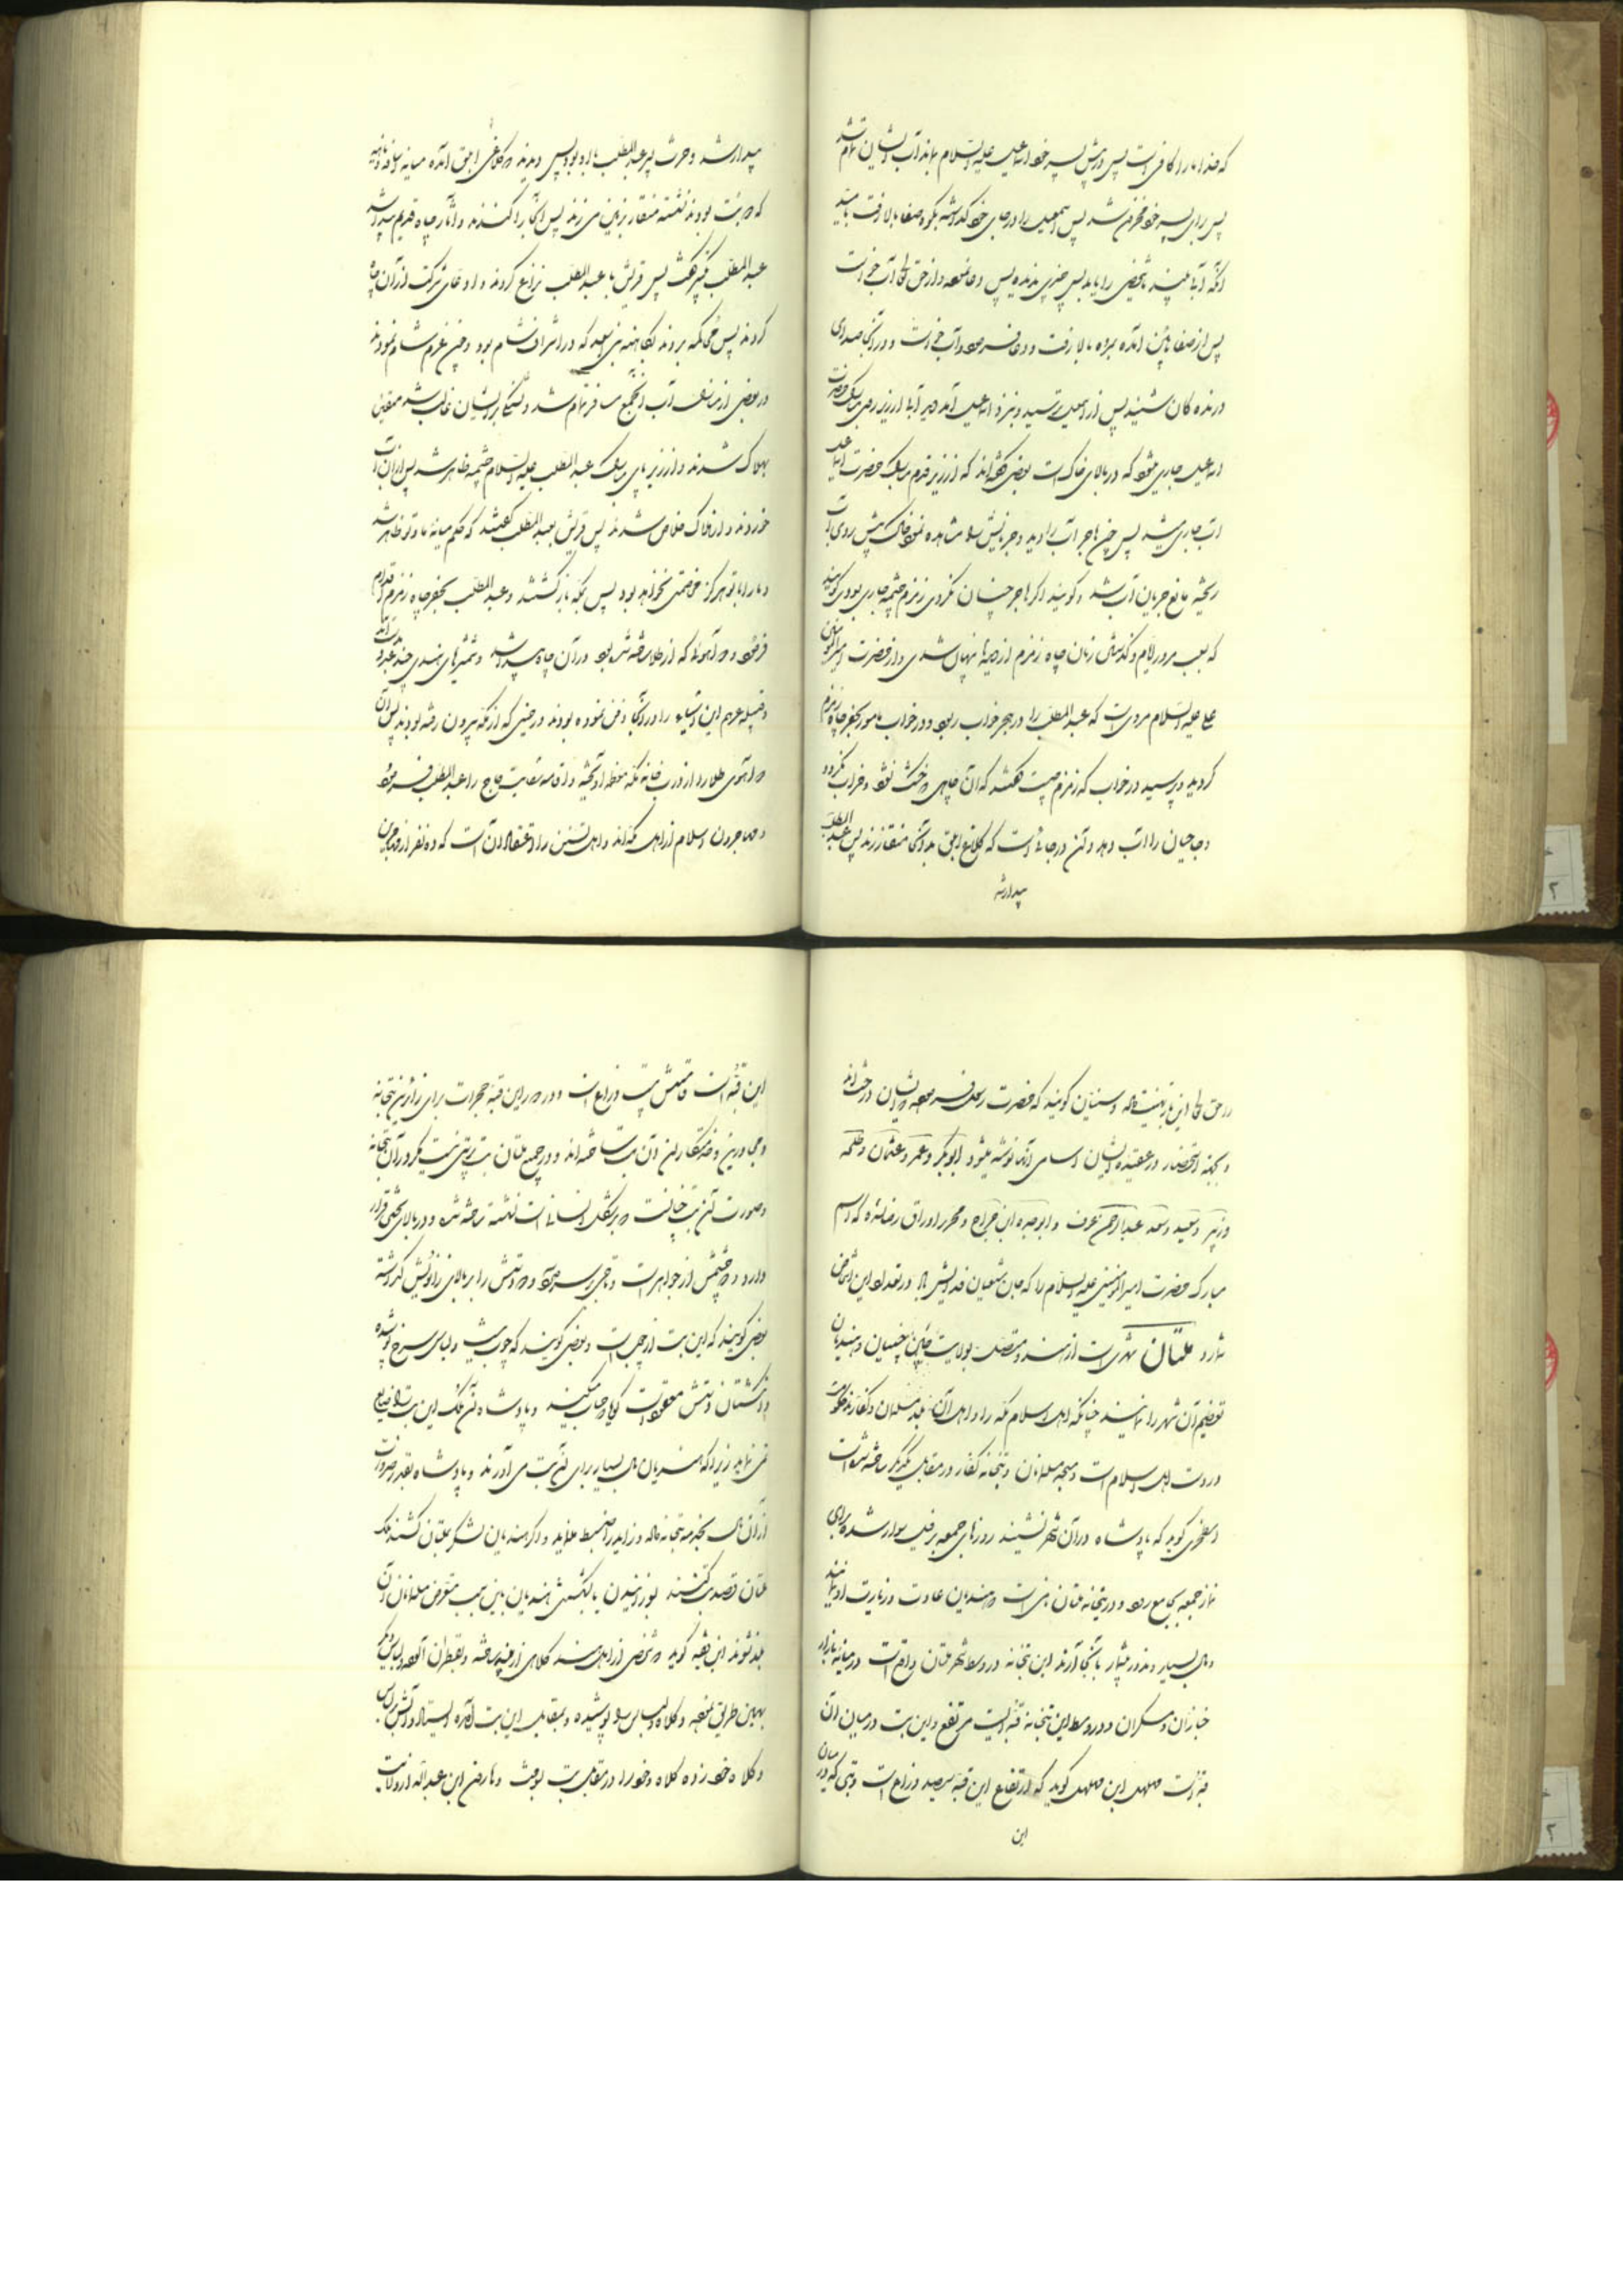 که خدا ما را کافی است پس درش پسر خود اسماعیل علیه السلام بماند آب ایشان تمام شد
پس برای پسر خود محزون شد پس اسمعیل را در جای خود گذاشته بکوه صفا بالا رفت تا ببیند
آنکه آیا چشمه یا شخصی را یابد پس چیزی ندیده پس دعا نموده و از حق تعالی آب خواست
پس از صفا پائین آمده بمروه بالا رفت و دعا فرموده و آب خواست و در آنجا صدای
درنده کان شنید پس از اسمعیل ترسید و نزد اسماعیل آمد دید آبی از زیر روی مبارک حضرت
اسماعیل جاری میشود که در بالای خاک است بعضی گفته‌اند که از زیر قدم مبارک حضرت اسماعیل
آب جاری میشد پس چون هاجر آب را دید و جریانش را مشاهده نمود خاک پیش روی آب
ریخته مانع جریان آب شد و گویند اگر هاجر چنان نکردی زمزم چشمه جاری بودی گویند
که بسبب مرور ایام و گذشتن زمان چاه زمزم از دیدها پنهان شدی و از حضرت امیرالمؤمنین
علی علیه السلام مرویست که عبدالمطلب را در حجر خواب ربود و در خواب مامور بحفر چاه زمزم
گردید پرسید در خواب که زمزم چیست گفتند که آن چاهی است خشک نشود و خراب نگردد
و حاجیان را آب دهد و آن در جائی است که کلاغ ابلق بدآنجا منقار زند پس عبدالمطلب
بیدار شد
بیدار شد و حرث پسر عبدالمطلب با او بود پس دیدند کلاغی ابلق آمده میانه اساف و نائله
که دو بت بودند نشسته منقار بزمین می زند پس آنجا را کندند و آثار چاه قدیم پیدا شد
عبدالمطلب تکبیر گفت پس قریش با عبدالمطلب نزاع کردند و ادعای شرکت از آن چاه
کردند پس محاکمه بردند بکاهنه بنی سعد که در اشراف شام بود و چون عزم شام نمودند
در بعضی از منازل آب آنجمع مسافر تمام شد و تشنگی بر ایشان غالب شد متیقن
بهلاک شدند و از زیر پای مبارک عبدالمطلب علیه السلام چشمه ظاهر شد پس از آن آب
خوردند و از هلاک خلاص شدند پس قریش بعبدالمطلب گفتند که حکم میانه ما و تو ظاهر شد
و ما را با تو هرگز خصمتی نخواهد بود پس بمکه باز گشتند و عبدالمطلب بحفر چاه زمزم اقدام
فرمود و دو آهو که از طلا ساخته شده بود در آن چاه پیدا شد و شمشیرهای هندی چند بدست آمد
و قبیله جرهم این اشیاء را در آنجا دفن نموده بودند در حینی که از مکه بیرون رفته بودند پس آن
دو آهوی طلا را از درب خانه مکه معظمه آویخته و اقامه سقایت حاج را عبدالمطلب فرمود
و مهاجرون اسلام از اهل مکه‌اند و اهل تسنن را اعتقاد آن است که ده نفر از مهاجرین
در حق تعالی این بار بهشت داده و سنیان گویند که حضرت رسول فرموده ایشان در جنت‌اند
و بجهت استحضار در عقیده ایشان اسامی آنها نوشته میشود ابوبکر و عمر و عثمان و طلحه
و زبیر و سعید و سعد عبدالرحمن عوف و ابوعبیده ابن جراح و محرر اوراق رضا نداد که اسم
مبارک حضرت امیرالمؤمنین علیه السلام را که جان شیعیان فدایش باد در تعداد این اشخاص
شمارد ملتان شهری است از هند و متصل بولایت چین چینیان و هندیان
تعظیم آن شهر را نمایند چنانکه اهل اسلام مکه را و اهل آن بلد مسلمان و کفارند حکومت
در دست اهل اسلام است و مسجد مسلمانان و بتخانه کفار در مقابل یکدیگر ساخته شده است
اصطخری گوید که پادشاه در آن شهر نشیند روزهای جمعه بر فیل سوار شده برای
نماز جمعه بجامع رود و در بتخانه ملتان بتی است هندیان عبادت و زیارت او نمایند
و مال بسیار و نذور بیشمار بآنجا آرند این بتخانه در وسط شهر ملتان واقع است در میانه بازار
خبازان و مسگران و در وسط این بتخانه قبه ایست مرتفع و این بت در میان آن
قبه است مهلهل ابن مهلهل گوید که ارتفاع این قبه سیصد ذراع است و بتی که در میان
این
این قبه است قامتش بیست ذراع است و در دور این قبه حجرات برای زائرین بتخانه
و مجاورین و خدمتکاران آن بت ساخته‌اند و در جمیع ملتان بت پرستی نیست مگر در آن بتخانه
و صورت آن بت چنانست که بر شکل انسان است نشسته ساخته شده و در بالای تختی قرار
دارد و دو چشمش از جواهر است و تاجی بر سر دارد و دو دستش را بر بالای زانویش گذاشته
بعضی گویند که این بت از چوب است و بعضی گویند که چوب نیست و لباس سرخ پوشیده
و انگشتان دستش معقود است گویا حساب میکنند و پادشاه آن ملک این بت را ضایع
نمی نماید زیرا که هندیان مال بسیار برای آن بت می آورند و پادشاه بقدر ضرورت
از آن مال بخدمه بتخانه داده و زاید را ضبط نماید و اگر هندیان لشکر بملتان کشند ملک
ملتان قصد میکنند بسوزانیدن یا بشکستن هندیان باین سبب متعرض مسلمانان آن
بلد نشوند ابن فقیه گوید شخصی از اهل هند کلاهی از پنبه ساخته و بقطران آلوده و لباس دیگر
بهمین طریق نموده و کلاه و لباس را پوشیده و بمقابل این بت آمده ایستاد و آتش بر لباس
و کلاه خود زده کلاه و خود را در مقابل بت بسوخت و هارون ابن عبدالله از ولایت